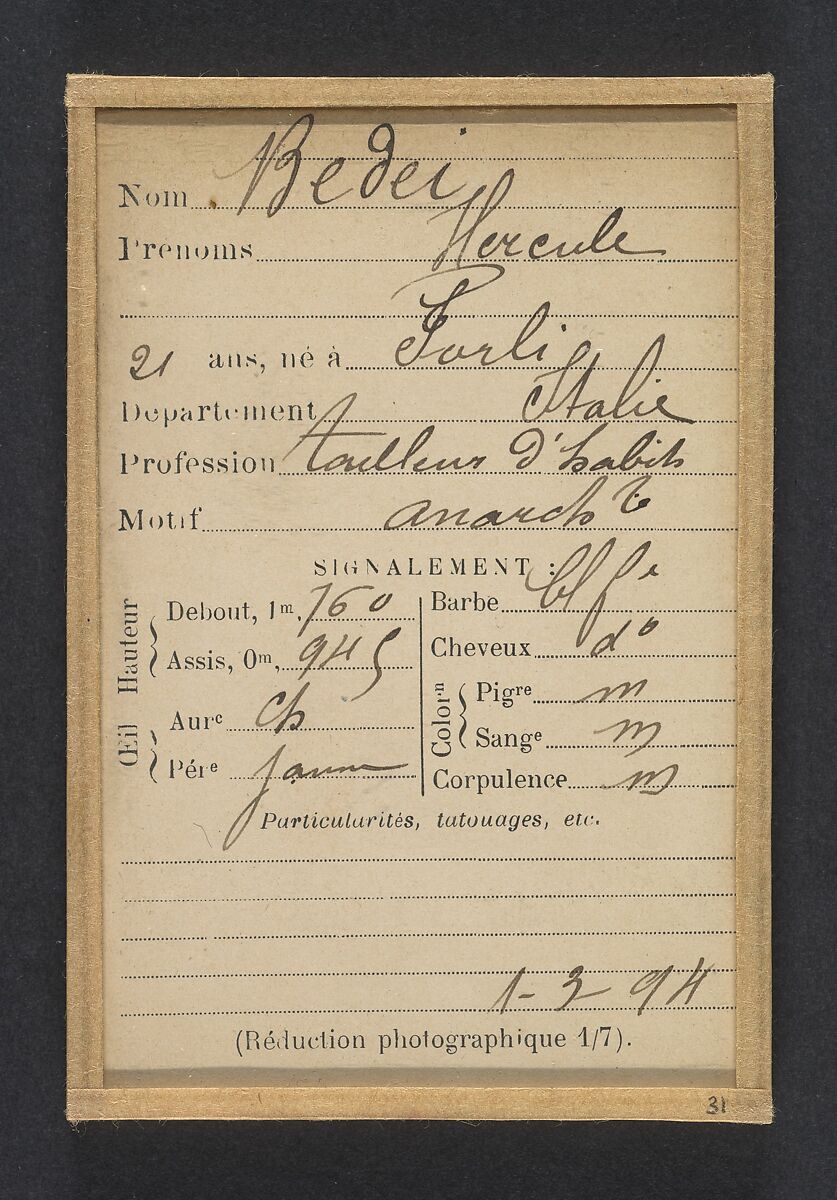 Nom Bedei
Prénoms Hercule
21 ans, né à Forli
Département Italie
Profession tailleur d'habits
Motif anarchte
SIGNALEMENT :
Hauteur
Debout, 1m, 760
Assis, 0m, 945
Œil
Aure ch
Pére jaune
Barbe bl fe
Cheveux do
Colorn
Pigre m
Sange m
Corpulence m
Particularités, tatouages, etc.
1-3 94
(Réduction photographique 1/7).
31